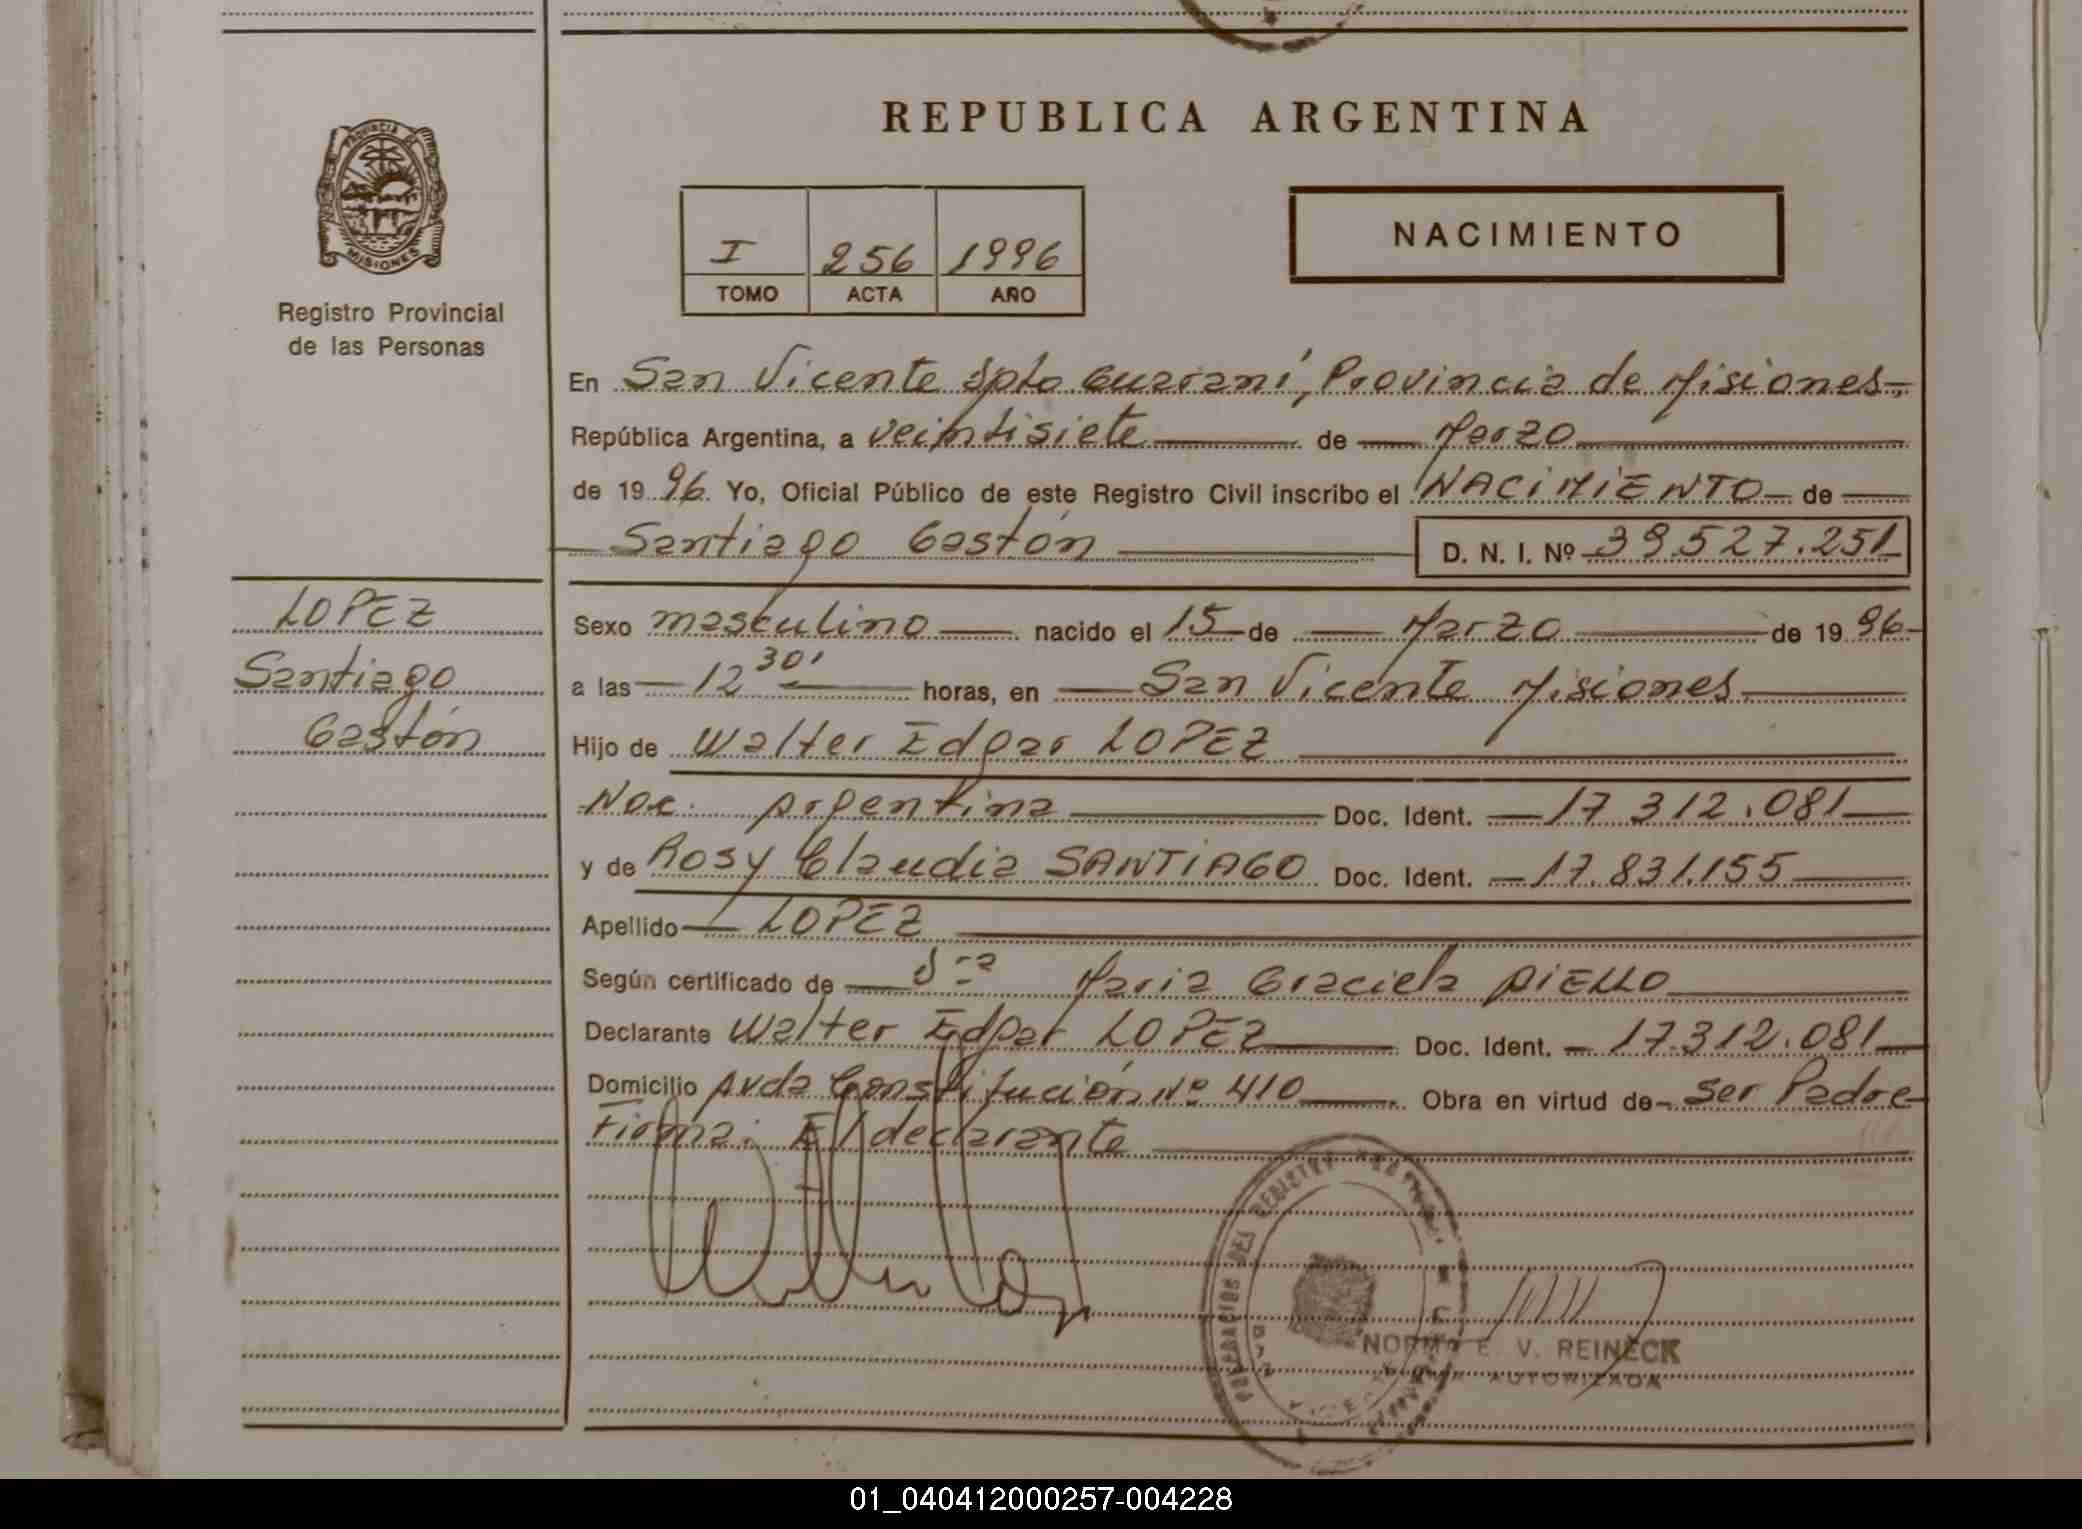 REPUBLICA ARGENTINA
PROVINCIA DE MISIONES
Registro Provincial
de las Personas
I 256 1996
TOMO ACTA AÑO
NACIMIENTO
En San Vicente Dpto Guaraní, Provincia de Misiones.-
República Argentina, a veintisiete de Marzo
de 19 96. Yo, Oficial Público de este Registro Civil inscribo el NACIMIENTO de
Santiago Gastón D. N. I. Nº 39.527.251
LOPEZ
Santiago
Gastón
Sexo masculino nacido el 15 de Marzo de 19 96
a las 12 30' horas, en San Vicente Misiones
Hijo de Walter Edgar LOPEZ
Nac. Argentina Doc. Ident. 17 312.081
y de Rosy Claudia SANTIAGO Doc. Ident. 17.831.155
Apellido LOPEZ
Según certificado de Sra Maria Graciela AIELLO
Declarante Walter Edgar LOPEZ Doc. Ident. 17.312.081
Domicilio Avda Constitución Nº 410 Obra en virtud de Ser Padre
Firma: El declarante
DEL REGISTRO
NORMA E. V. REINECK
AUTORIZADA
01_040412000257-004228